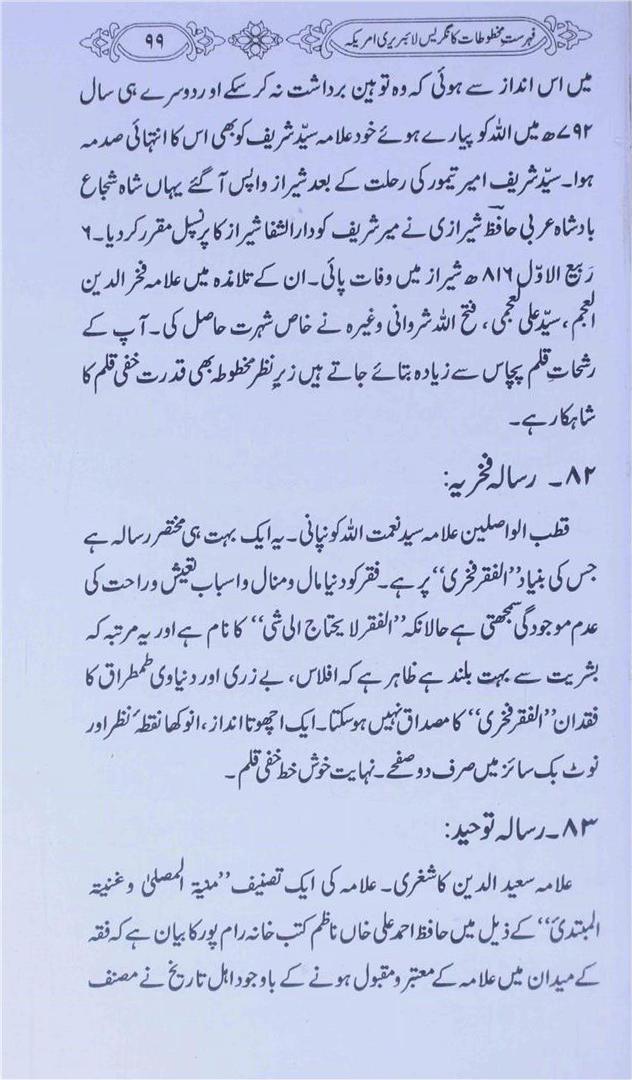 فہرستِ مخطوطات کانگریس لائبریری امریکہ
۹۹
میں اس انداز سے ہوئی کہ وہ توہین برداشت نہ کر سکے اور دوسرے ہی سال
۷۹۲ھ میں اللہ کو پیارے ہوئے خود علامہ سیّد شریف کو بھی اس کا انتہائی صدمہ
ہوا۔ سیّد شریف امیر تیمور کی رحلت کے بعد شیراز واپس آ گئے یہاں شاہ شجاع
بادشاہ عربی حافظ شیرازی نے میر شریف کو دارالشفا شیراز کا پرنسپل مقرر کر دیا۔ ۶
ربیع الاوّل ۸۱۶ھ شیراز میں وفات پائی۔ ان کے تلامذہ میں علامہ فخر الدین
العجم، سیّد علی العجمی، فتح اللہ شروانی وغیرہ نے خاص شہرت حاصل کی۔ آپ کے
رشحاتِ قلم پچاس سے زیادہ بتائے جاتے ہیں زیرِ نظر مخطوطہ بھی قدرت خفی قلم کا
شاہکار ہے۔
۸۲۔ رسالہ فخریہ:
قطب الواصلین علامہ سید نعمت اللہ کونپانی۔ یہ ایک بہت ہی مختصر رسالہ ہے
جس کی بنیاد ’’الفقر فخری‘‘ پر ہے۔ فقر کو دنیا مال و منال و اسباب تعیش و راحت کی
عدم موجودگی سمجھتی ہے حالانکہ ’’الفقر لا یحتاج الی شی‘‘ کا نام ہے اور یہ مرتبہ کہ
بشریت سے بہت بلند ہے ظاہر ہے کہ افلاس، بے زری اور دنیاوی طمطراق کا
فقدان ’’الفقر فخری‘‘ کا مصداق نہیں ہو سکتا۔ ایک اچھوتا انداز، انوکھا نقطۂ نظر اور
نوٹ بک سائز میں صرف دو صفحے۔ نہایت خوش خط خفی قلم۔
۸۳۔ رسالہ توحید:
علامہ سعید الدین کاشغری۔ علامہ کی ایک تصنیف ’’منیۃ المصلیٰ و غنیۃ
المبتدیٔ‘‘ کے ذیل میں حافظ احمد علی خاں ناظم کتب خانہ رام پور کا بیان ہے کہ فقہ
کے میدان میں علامہ کے معتبر و مقبول ہونے کے باوجود اہل تاریخ نے مصنف